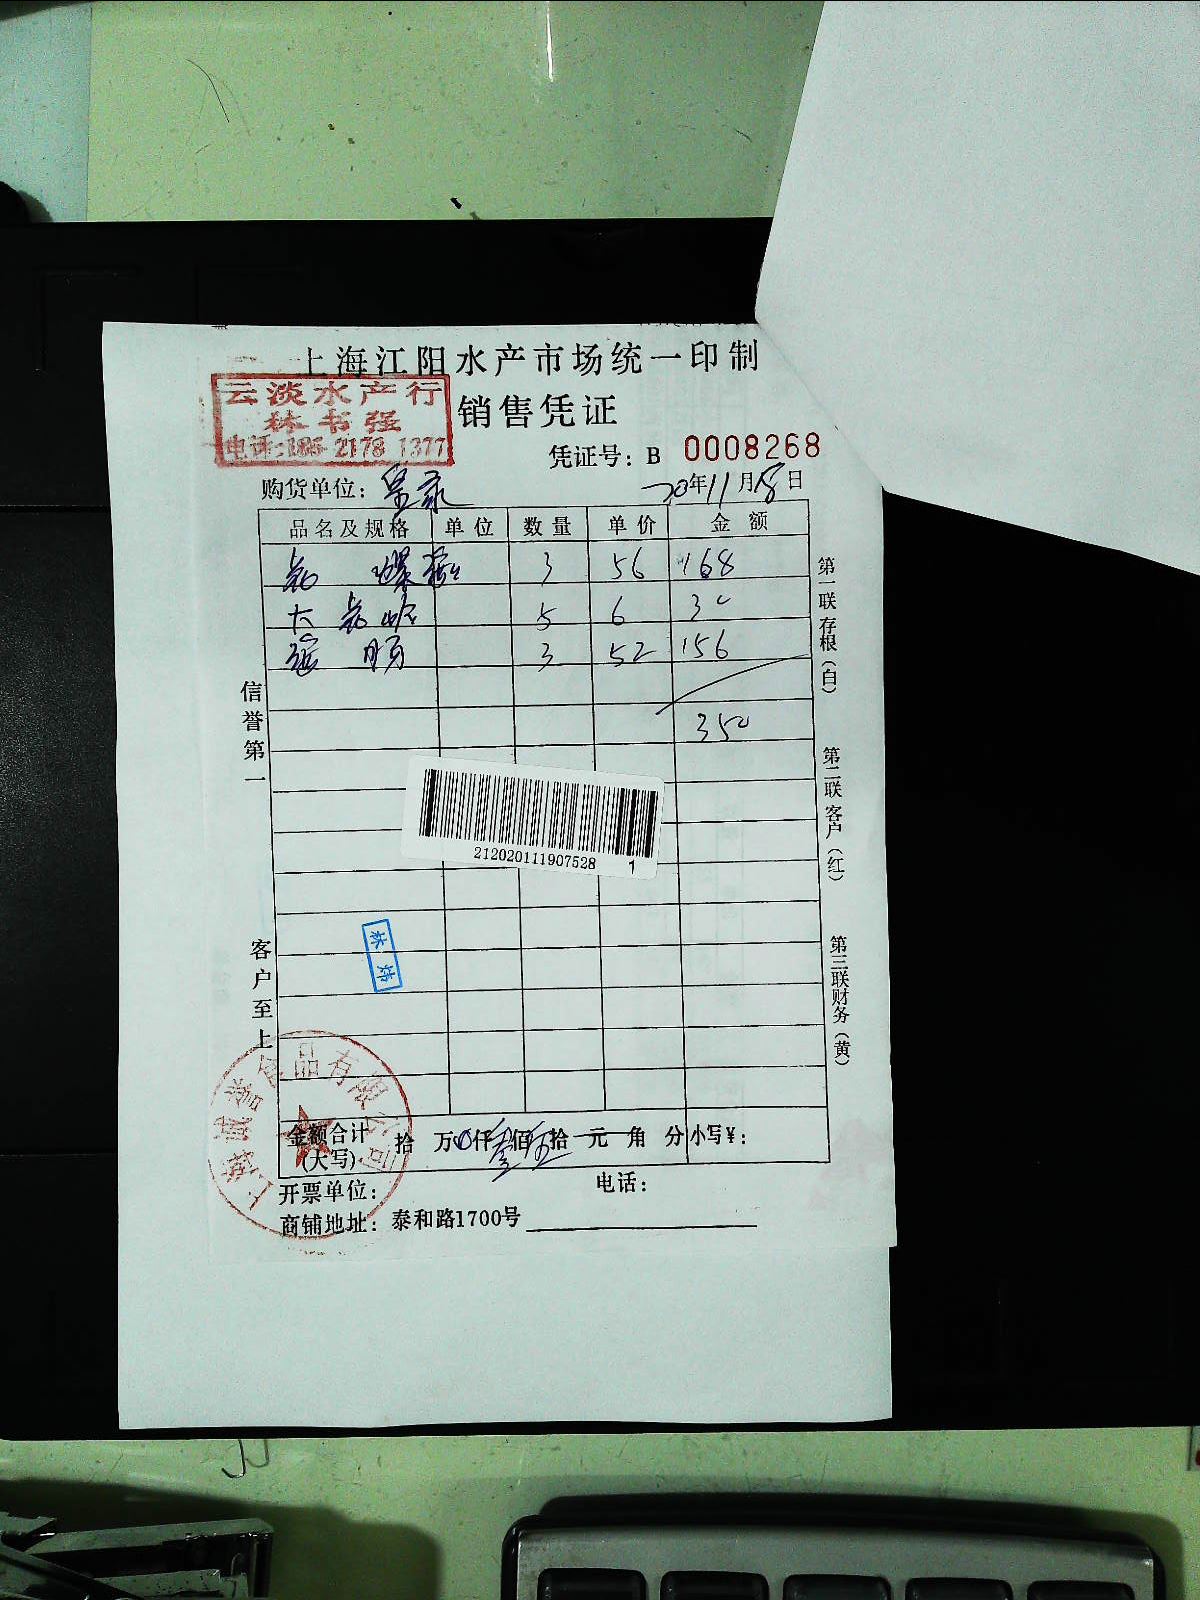 上海江阳水产市场统一印制
云淡水产行
林书强
电话:186 2178 1377
销售凭证
凭证号: B 0008268
购货单位:
20年11月18日
品名及规格 单位 数量 单价 金额
3 56 168
大 5 6 30
3 52 156
350
信誉第一
客户至上
第一联存根(白)
第二联客户(红)
第三联财务(黄)
212020111907528 1
上海诚誉食品有限公司
金额合计(大写) 拾 万 0 仟 叁 佰 伍 拾 元 角 分 小写¥:
开票单位:
电话:
商铺地址: 泰和路1700号